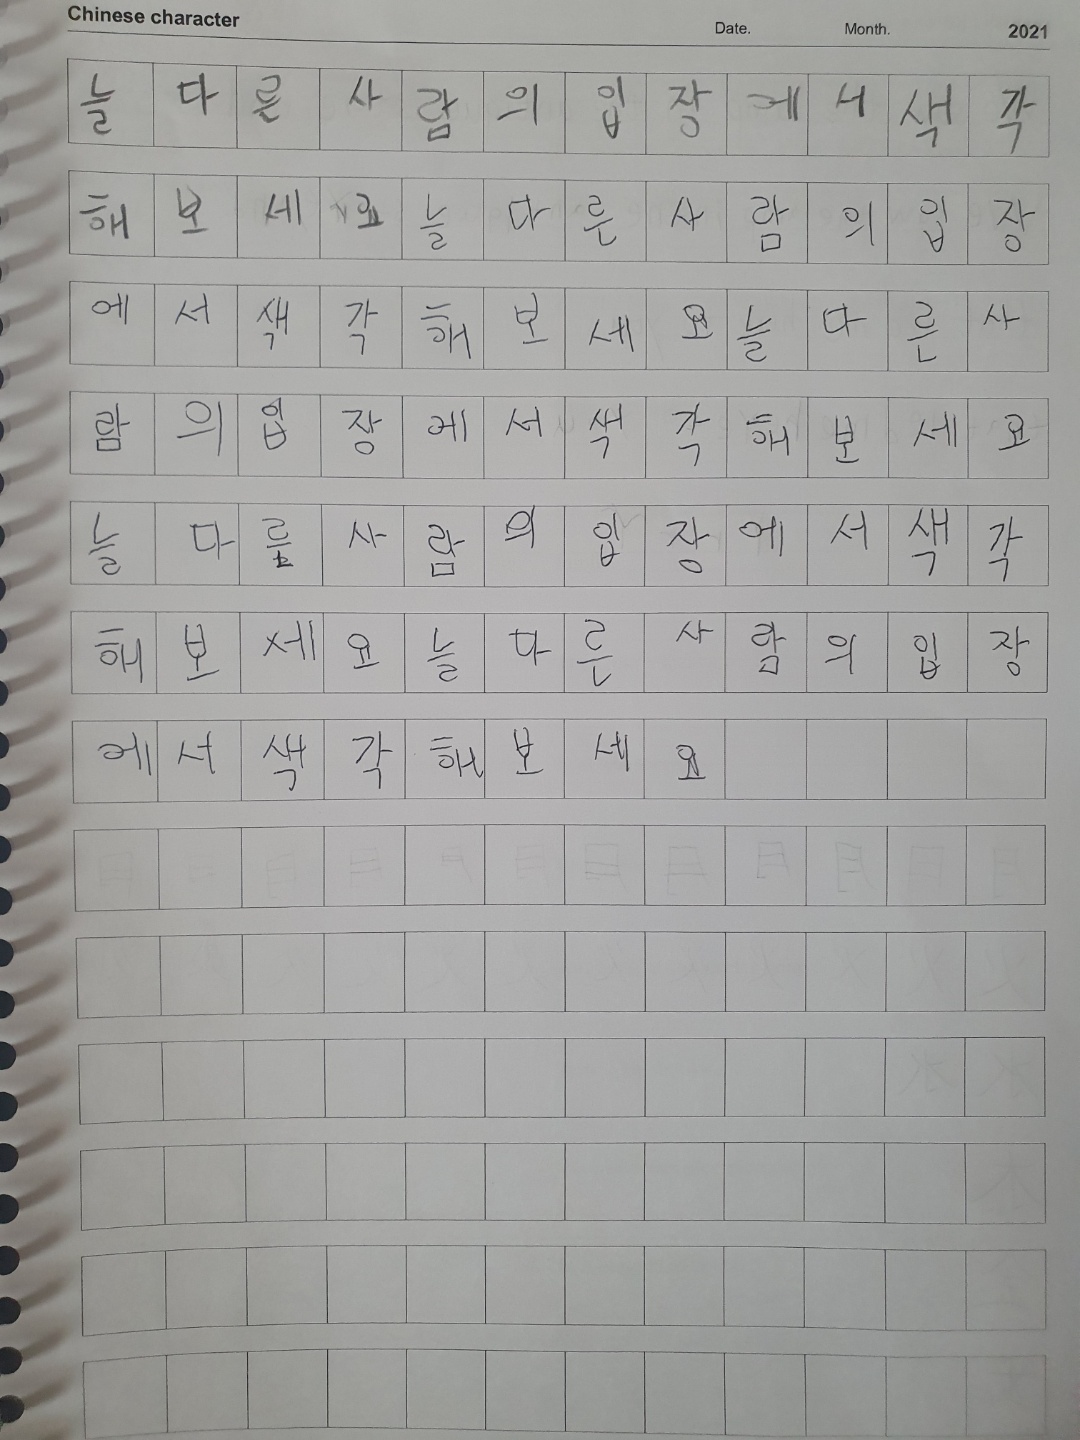 Chinese character Date. Month. 2021
늘 다 를 사 람 의 입 장 에 서 색 각
해 보 세 요 늘 다 른 사 람 의 입 장
에 서 색 각 해 보 세 요 늘 다 른 사
람 의 입 장 에 서 색 각 해 보 세 요
늘 다 름 사 람 의 입 장 에 서 색 각
해 보 세 요 늘 다 른 사 람 의 입 장
에 서 색 각 해 보 세 요